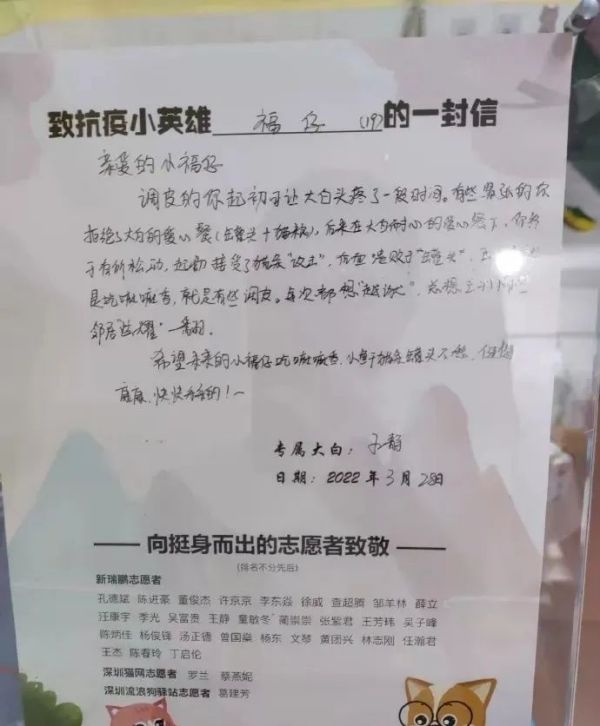 致抗疫小英雄 福仔 (19) 的一封信
亲爱的小福仔
调皮的你起初可让大白头疼了一段时间。有些紧张的你
拒绝了大白的爱心餐(罐头+猫粮),后来在大白耐心的爱心餐下,你终
于有所松动,起初接受了猫条"攻击",
是吃嘛嘛香,就是有些调皮。每次都想"越狱",总想
邻居"炫耀"一番。
希望未来的小福仔吃嘛嘛香,小鱼干猫条罐头不愁,健健
康康、快快乐乐的!~
专属大白:子静
日期:2022年3月28日
向挺身而出的志愿者致敬
(排名不分先后)
新瑞鹏志愿者
孔德斌 陈进豪 董俊杰 许京京 李东焱 徐威 查超腾 邹羊林 薛立
汪康宇 季光 吴富贵 王静 童敏冬 蔺崇崇 张紫君 王芳玮 吴子峰
陈炳佳 杨俊锋 汤正德 曾国燊 杨东 文琴 黄团兴 林志刚 任瀚君
王杰 陈春玲 丁启伦
深圳猫网志愿者 罗兰 蔡燕妮
深圳流浪狗驿站志愿者 葛建芳